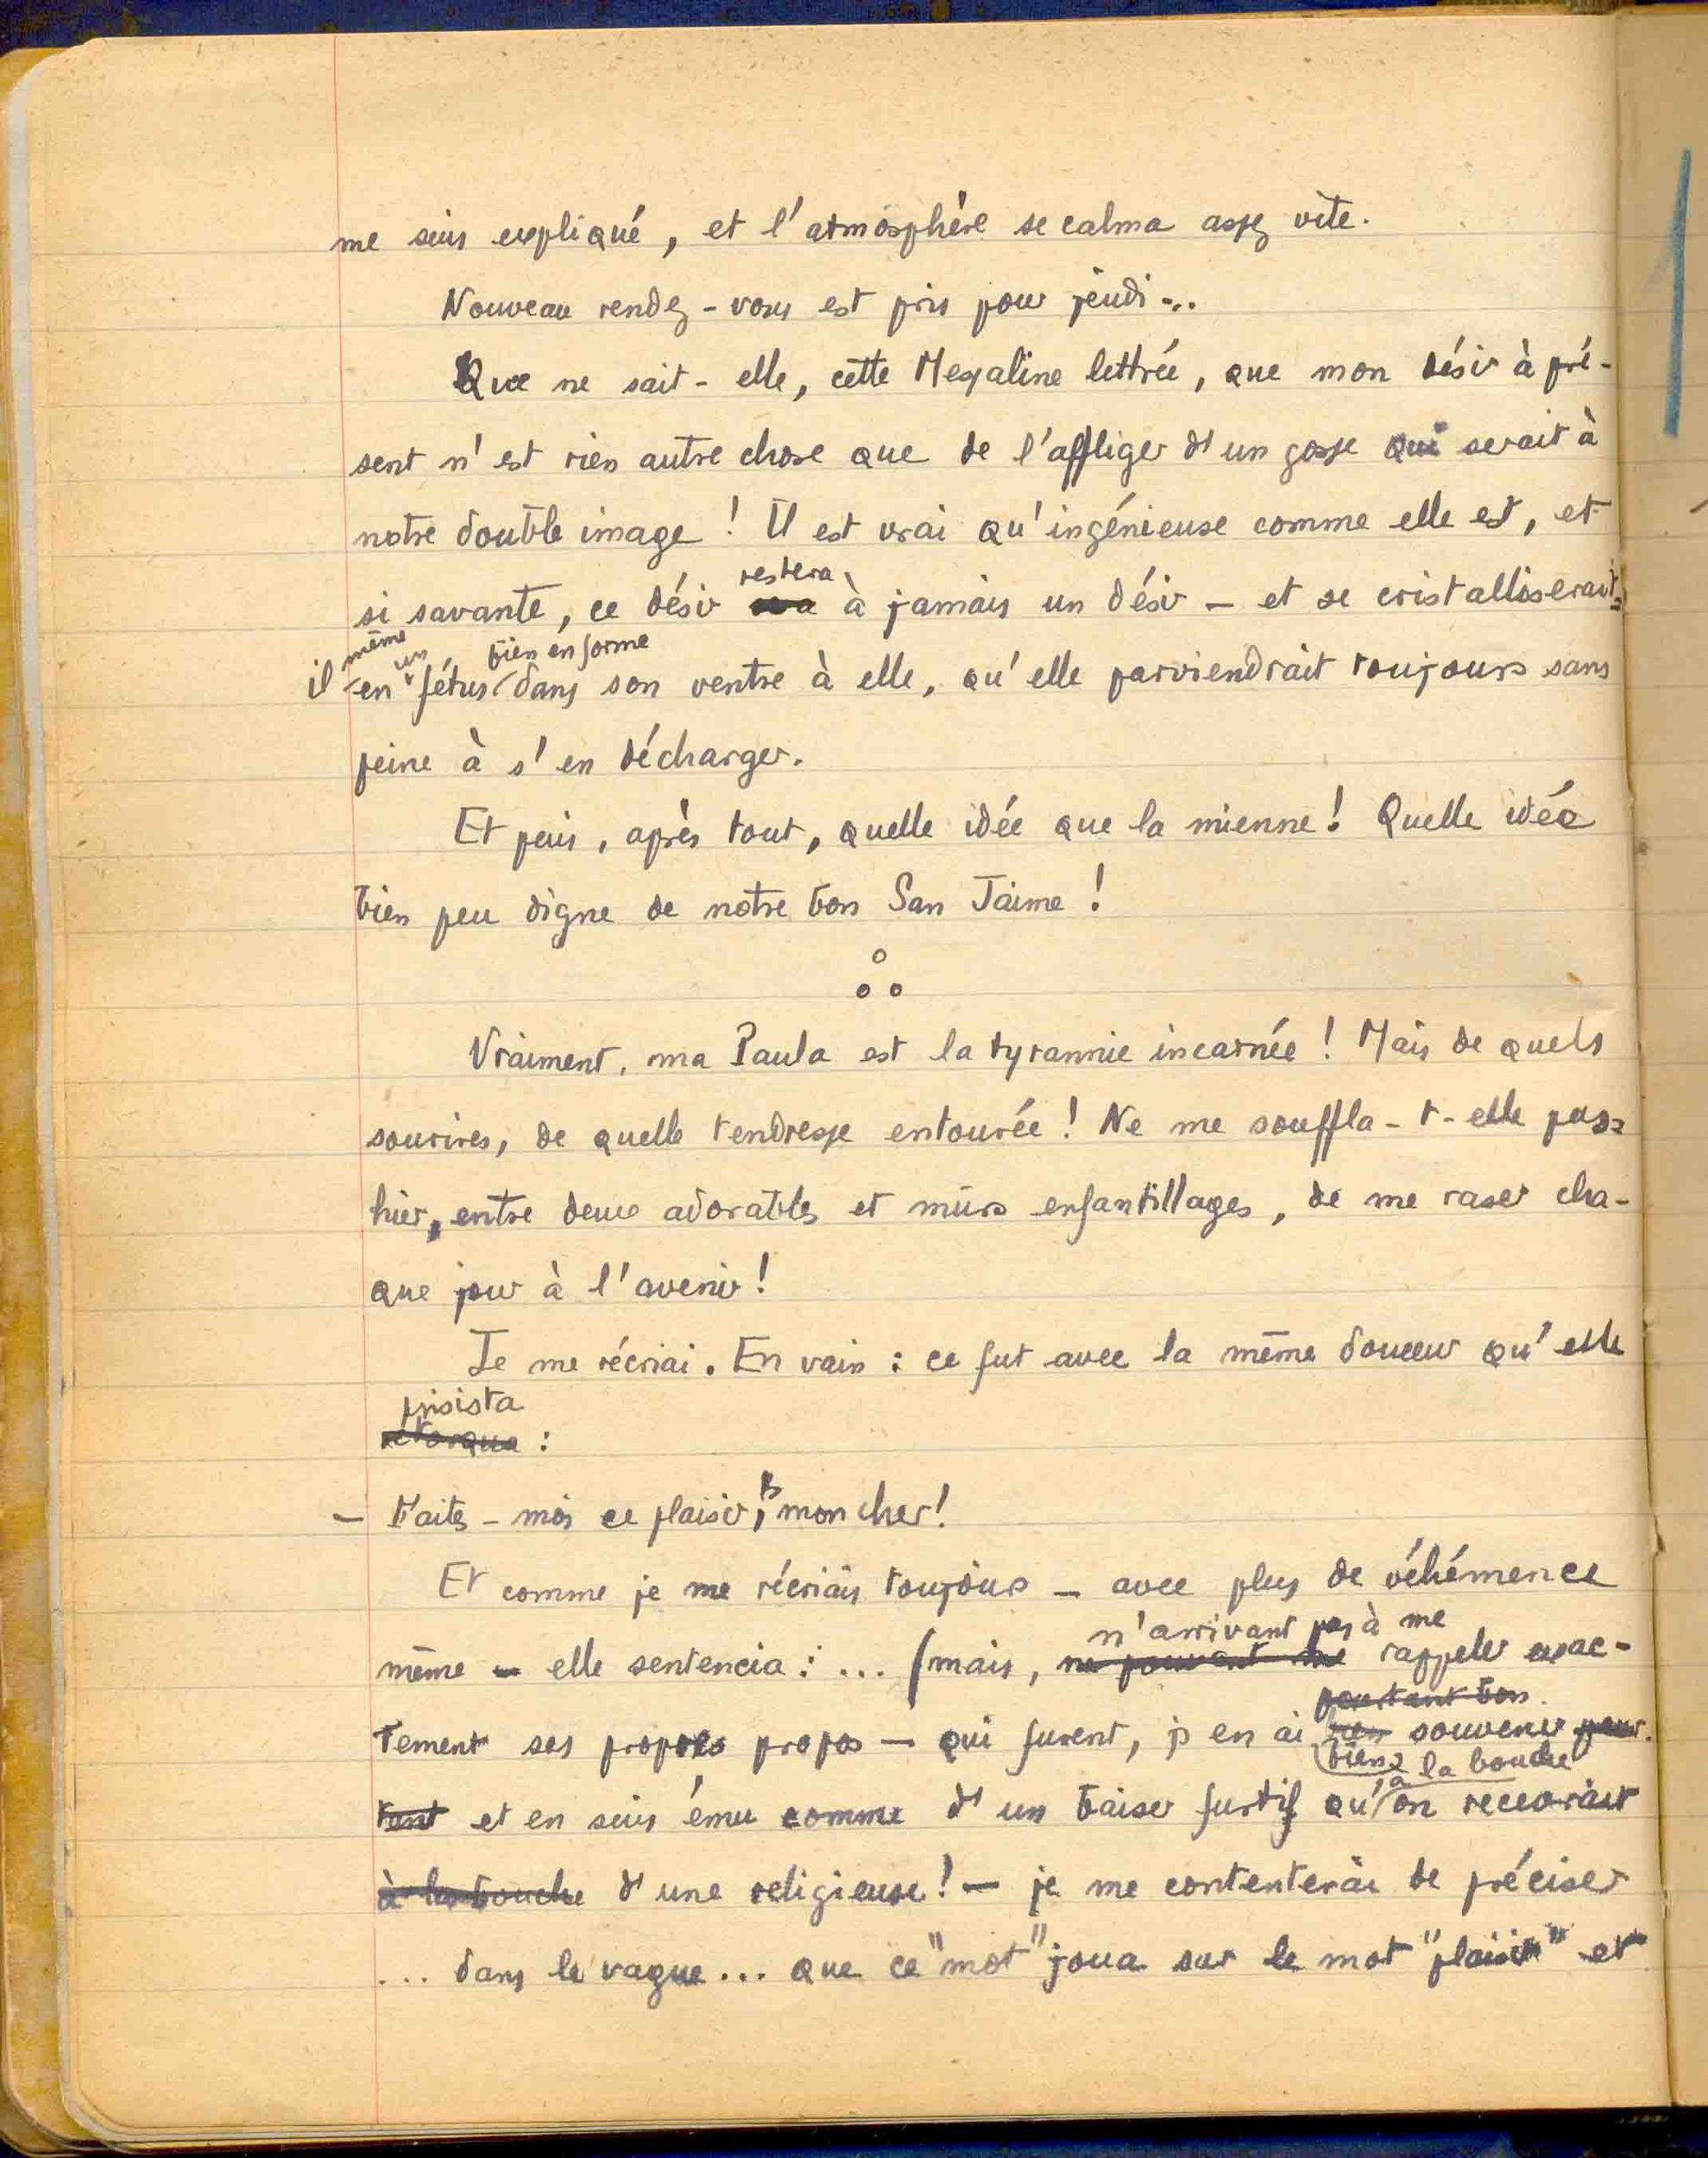 me suis expliqué, et l'atmosphère se calma assez vite.
Nouveau rendez-vous est pris pour jeudi...
Que ne sait-elle, cette Messaline lettrée, que mon désir à pré-
sent n'est rien autre chose que de l'affliger d'un gosse qui serait à
notre double image ! Il est vrai qu'ingénieuse comme elle est, et
restera
si savante, ce désir à jamais un désir — et se cristalliserait-
même un bien en forme
il en fétus dans son ventre à elle, qu'elle parviendrait toujours sans
peine à s'en décharger.
Et puis, après tout, quelle idée que la mienne ! Quelle idée
bien peu digne de notre bon San Jaime !
Vraiment, ma Paula est la tyrannie incarnée ! Mais de quels
sourires, de quelle tendresse entourée ! Ne me souffla-t-elle pas,
hier, entre deux adorables et mûrs enfantillages, de me raser cha-
que jour à l'avenir !
Je me récriai. En vain : ce fut avec la même douceur qu'elle
insista
rétorqua :
— Faites-moi ce plaisir, mon cher !
Et comme je me récriais toujours — avec plus de véhémence
n'arrivant pas à me
même — elle sentencia : ... (mais, ne pouvant me rappeler exac-
pourtant bon
tement ses propres propos — qui furent, j'en ai bon souvenir pour-
bien à la bouche
tant et en suis ému comme d'un baiser furtif qu'on recevrait
à la bouche d'une religieuse ! — je me contenterai de préciser
... dans le vague... que ce "mot" joua sur le mot "plaisir" et